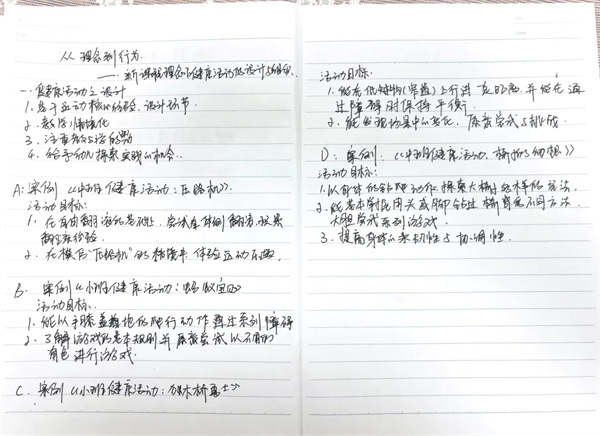 从理念到行为
——新课程理念下健康活动的设计与组织
一. 健康活动之设计
1. 基于运动核心经验, 设计环节
2. 教学情境化
3. 注重教与学的
4. 给予幼儿探索实践的机会.
A: 案例《中班健康活动: 压路机》.
活动目标:
1. 在自由翻滚的基础上, 尝试直体侧翻滚, 积累
翻滚经验.
2. 在模仿"压路机"的情境中, 体验运动乐趣.
B. 案例《小班健康活动: 蚂蚁》
活动目标.
1. 能以手膝着地的爬行动作通过系列障碍
2. 了解游戏的基本规则并愿意尝试以不同的
角色进行游戏.
C. 案例《小班健康活动: 独木桥勇士》
活动目标:
1. 能在低矮物(窄道)上行进一定距离, 并能在通
过障碍时保持平衡.
2. 能发现场景中的变化, 愿意尝试与挑战.
D: 案例:《中班健康活动: 桥》
活动目标:
1. 以身体的钻爬动作, 探索大桥的方法.
2. 能基本掌握用头或脚钻过桥洞的不同方法
大胆尝试系列游戏.
3. 提高身体的柔韧性与协调性.